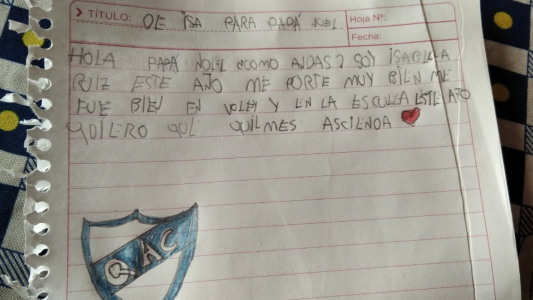 TÍTULO: DE ISA PARA PAPÁ NOEL
Hoja Nº:
Fecha:
HOLA PAPÁ NOEL COMO ANDAS? SOY ISABELLA
RUIZ ESTE AÑO ME PORTE MUY BIEN ME
FUE BIEN EN VOLEY Y EN LA ESCUELA ESTE AÑO
QUIERO QUE QUILMES ASCIENDA
QAC